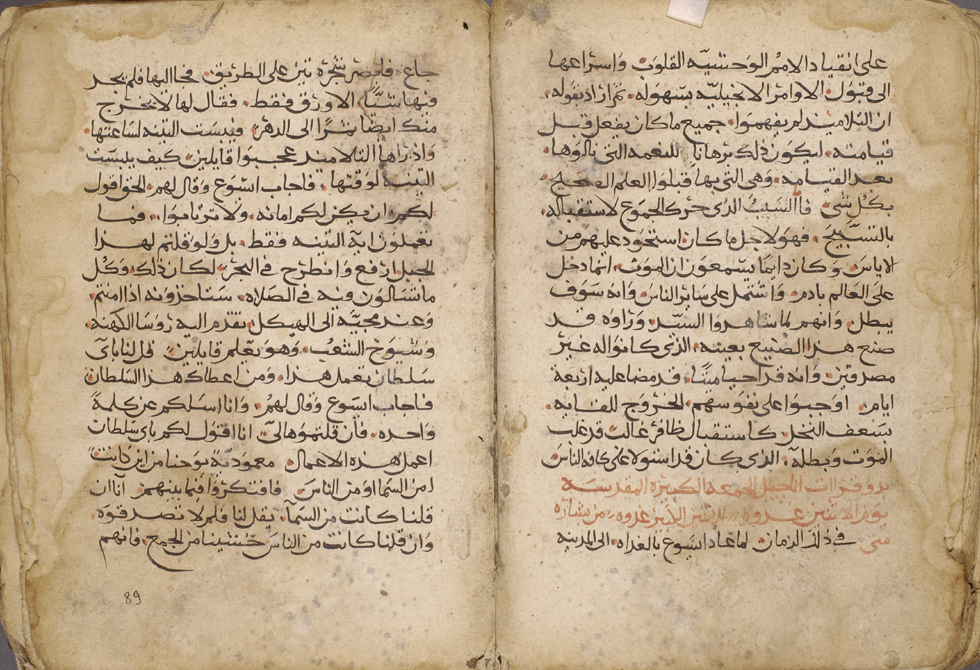 على انقياد الامم الوحشيه القلوب واسراعها
الى قبول الاوامر الانجيليه بسهوله ثم اراد بقوله
ان التلاميذ لم يفهموا جميع ما كان يفعل قبل
قيامته ليكون ذلك برهانا للنعمه التي نالوها
بعد القيامه وهي التي بها قبلوا العلم الصحيح
بكل شي فاما السبب الذي حرك الجموع لاستقباله
بالتسبيح فهو لاجل ما كان استحود عليهم من
الاياس وكان دايما يسمعون ان الموت انما دخل
على العالم بادم واشتمل على ساير الناس وانه سوف
يبطل وانهم لما شاهدوا السيد وراوه قد
صنع هذا الصنيع بعينه الذي كانوا له غير
مصدقين وانه قد احيا ميتا قد مضا عليه اربعة
ايام اوجبوا على نفوسهم الخروج للقايه
بسعف النخل كاستقبال ظافر غالب قد غلب
الموت وبطله الذي كان قد استولا على كافة الناس
بدو قراات انجيل الجمعه الكبيره المقدسه
يوم الاثنين غدوه الاثنين الكبير غدوه من بشارة
متى في ذلك الزمان لما عاد ايسوع بالغداه الى المدينه
جاع فابصر شجرة تين على الطريق فجا اليها فلم يجد
فيها شيا الا ورق فقط فقال لها لا يخرج
منك ايضا ثمرا الى الدهر فيبست التينه لساعتها
واذ راها التلاميذ عجبوا قايلين كيف يبست
التينه لوقتها فاجاب ايسوع وقال لهم الحق اقول
لكم ان يكن لكم امانه ولا ترتابوا فما
تعملون اية التينه فقط بل ولو قلتم لهذا
الجبل ارفع وانطرح في البحر لكان ذلك وكل
ما تسالون فيه في الصلاه ستاخذونه اذا امنتم
وعند مجيه الى الهيكل تقدم اليه روسا الكهنه
وشيوخ الشعب وهو يعلم قايلين قل لنا باي
سلطان تعمل هذا ومن اعطاك هذا السلطان
فاجاب ايسوع وقال لهم وانا اسلكم عن كلمة
واحده فان قلتموها لي انا اقول لكم باي سلطان
اعمل هذه الاعمال معمودية يوحنا من اين كانت
امن السما او من الناس فافتكروا فيما بينهم اناان
قلنا كانت من السما يقل لنا فلم لا تصدقوه
وان قلنا كانت من الناس خشينا من الجمع فانهم
89